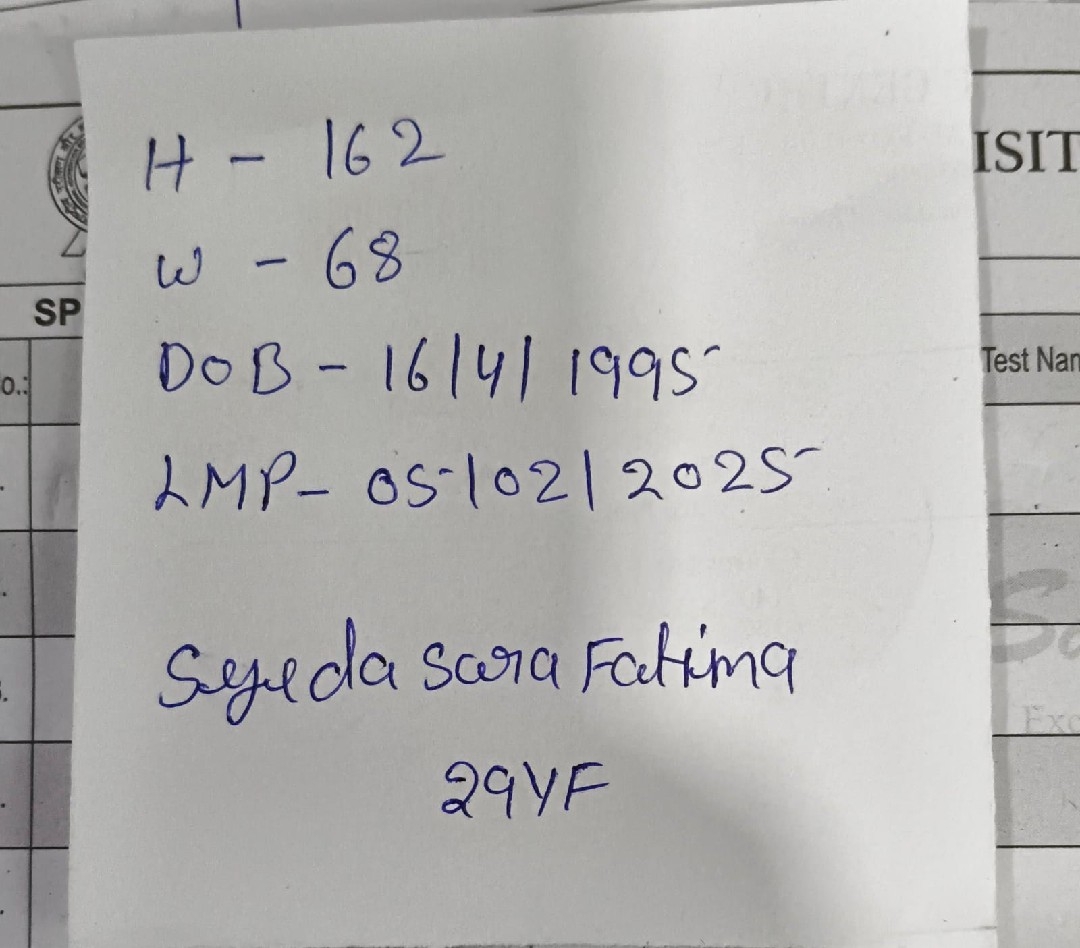 H - 162
ISIT
W - 68
SP
DOB - 16/4/1995
Test Nam
o.:
LMP - 05/02/2025
Syeda Sara Fatima
Exc
29YF